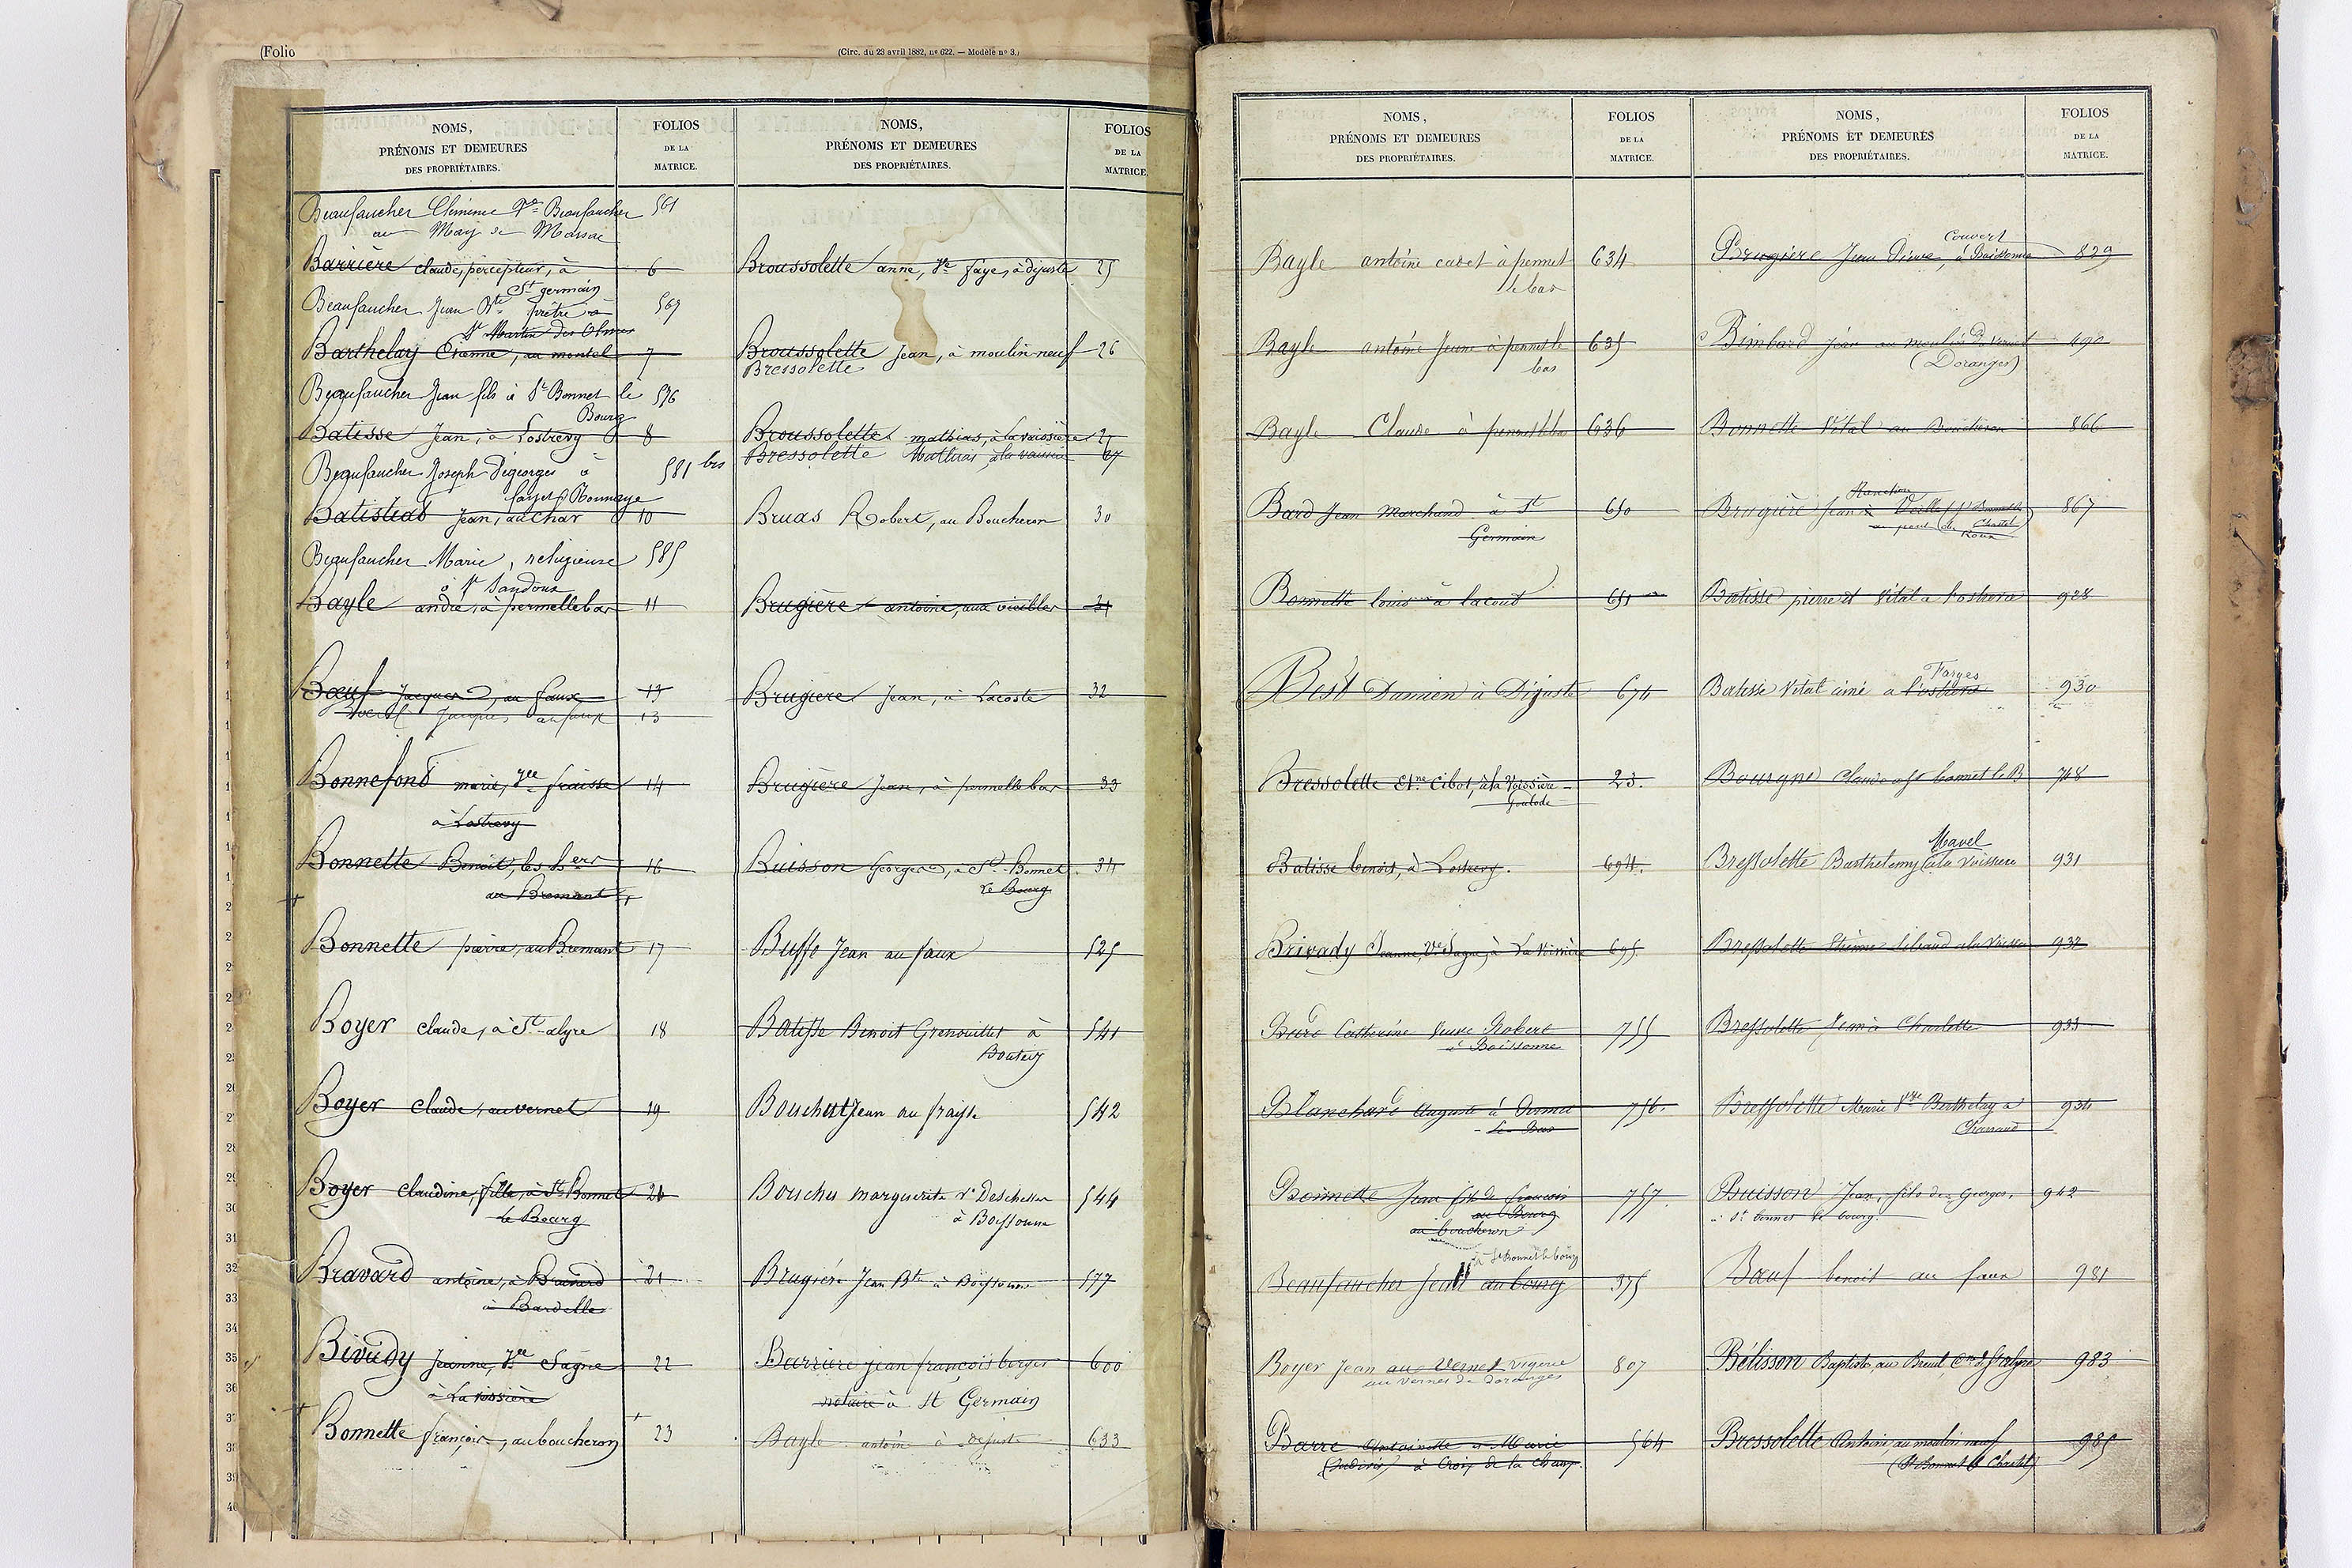 (Folio
(Circ. du 23 avril 1882, nº 622. — Modèle nº 3.)
NOMS,
PRÉNOMS ET DEMEURES
DES PROPRIÉTAIRES.
FOLIOS
DE LA
MATRICE.
Beaufaucher Clémence Vve Beaufaucher 561
au May de Marsac
Barrière claude, percepteur, à 6
St germain
Beaufaucher Jean Bte prêtre à 569
St Martin des Olmes
Barthelay Etienne, au montel 7
Beaufaucher Jean fils à St Bonnet le 576
Bourg
Batisse Jean, à Lostrevy 8
Beaufaucher Joseph Degeorges à 581 bis
Jean, au char 10
Beaufaucher Marie, religieuse 585
à St Sandoux
Bayle andré, à permellebas 11
Bœuf Jacques, au faux 13
Jacques au faux 13
Bonnefond marie, vve fraisse 14
à Lostrevy
Bonnette Benoit, les hers 16
au Bremant
Bonnette pierre, au Bremant 17
Boyer claude, à St-alyre 18
Boyer claude, au vernet 19
Boyer claudine, fille, à St Bonnet 20
le Bourg
Bravard antoine, à 21
à Bardelle
Jeanne, Vve Sagne 22
à La voissière
Bonnette françois, au boucheron 23
NOMS,
PRÉNOMS ET DEMEURES
DES PROPRIÉTAIRES.
FOLIOS
DE LA
MATRICE.
Broussolette anne, Ve faye, à dijuste 25
Broussolette Jean, à moulin neuf 26
Bressolette
Broussolette mathias, à la vaissière 27
Bressolette Mathias à la vaissière 27
Bruas Robert, au Boucheron 30
Brugière antoine, aux vieilles 31
Brugière Jean, à Lacoste 32
Brugière Jean, à permellebas 33
Buisson Georges, à St-Bonnet 34
le Bourg
Buffo Jean au faux 525
Batisse Benoit Grenouillet à 541
Bouchut Jean au fraisse 542
Bouchu marguerite ve 544
à Boissonne
Brugière Jean Bte à Boissonne 577
Barriere jean françois berger 600
notaire à St Germain
Bayle antoine à dijuste 633
NOMS,
PRÉNOMS ET DEMEURES
DES PROPRIÉTAIRES.
FOLIOS
DE LA
MATRICE.
Bayle antoine cadet à permel 634
le bas
Bayle antoine Jeune à permel le 635
bas
Bayle Claude à permel le bas 636
Bard Jean Marchand à St 650
Germain
Bonnette louis à lacout 651
Best Damien à Dijuste 674
Bressolette Etne Cibot, à la Voissière 23.
Batisse benoit, à Lostrevy. 694.
Brivady Jeanne, Ve Sagne, à La Voissière 695
Catherine Veuve Robert 755
à Boissonne
Blanchard Auguste à 756.
le Bas
Bonnette Jean fils de francois 757
au Bourg
au boucheron
à St Bonnet le bourg
Beaufaucher Jean au bourg 375
Boyer Jean au Vernet vigerie 807
au vernet de doranges
Barre Antoinette et Marie 564
(Indivis) à Croix de la Champ.
NOMS,
PRÉNOMS ET DEMEURES
DES PROPRIÉTAIRES.
FOLIOS
DE LA
MATRICE.
Couvert
Brugière Jean Pierre, à Boissonne 829
Bimbard jean au moulin du vernet 490
(Doranges)
Bonnette Vital au Boucheron 866
Brugière Jean à 867
Batisse pierre et Vital a lostrevie 928
Farges
Batisse Vital ainé a 930
Bourgne Claude a St bonnet le B 748
Mavel
Bressolette Barthelemy à la Voissiere 931
Bressolette Etienne à la Voissiere 932
Bressolette Jean à Charlette 933
Bressolette Marie Vve Berthelay a 934
Buisson Jean, fils de Georges. 942
à St bonnet le bourg.
Bœuf benoit au faux 981
Bélisson Baptiste, au Breuil Cne de St alyre 983
Bressolette Antoine, au moulin neuf 985
(St Bonnet le Chastel)